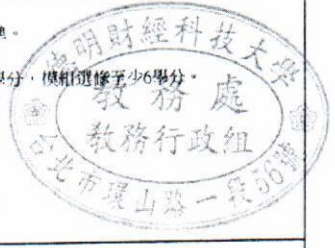 。
學分，模組選修至少6學分。
德明財經科技大學
教務處
教務行政組
台北市環山路一段56號